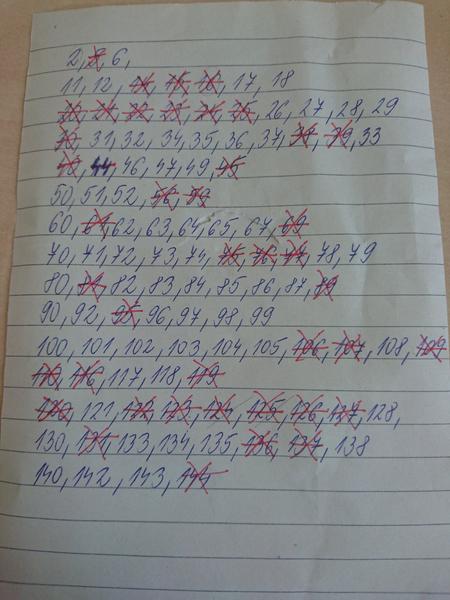 2, 3, 6,
11, 12, 14, 15, 16, 17, 18
20, 21, 22, 23, 24, 25, 26, 27, 28, 29
30, 31, 32, 34, 35, 36, 37, 38, 39, 33
40, 44, 46, 47, 49, 45
50, 51, 52, 56, 59
60, 61, 62, 63, 64, 65, 67, 69
70, 71, 72, 73, 74, 75, 76, 77, 78, 79
80, 81, 82, 83, 84, 85, 86, 87, 89
90, 92, 95, 96, 97, 98, 99
100, 101, 102, 103, 104, 105, 106, 107, 108, 109
110, 116, 117, 118, 119
120, 121, 122, 123, 124, 125, 126, 127, 128,
130, 131, 133, 134, 135, 136, 137, 138
140, 142, 143, 144